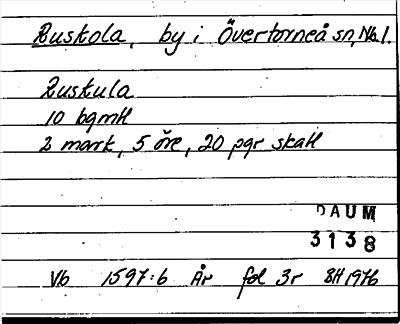 Ruskola, by i Övertorneå sn, Nb.l.
Ruskula
10 bgmtl
2 mark, 5 öre, 20 pgr skatt
DAUM
3138
Vb 1597:6 År fol 3r BH 1976